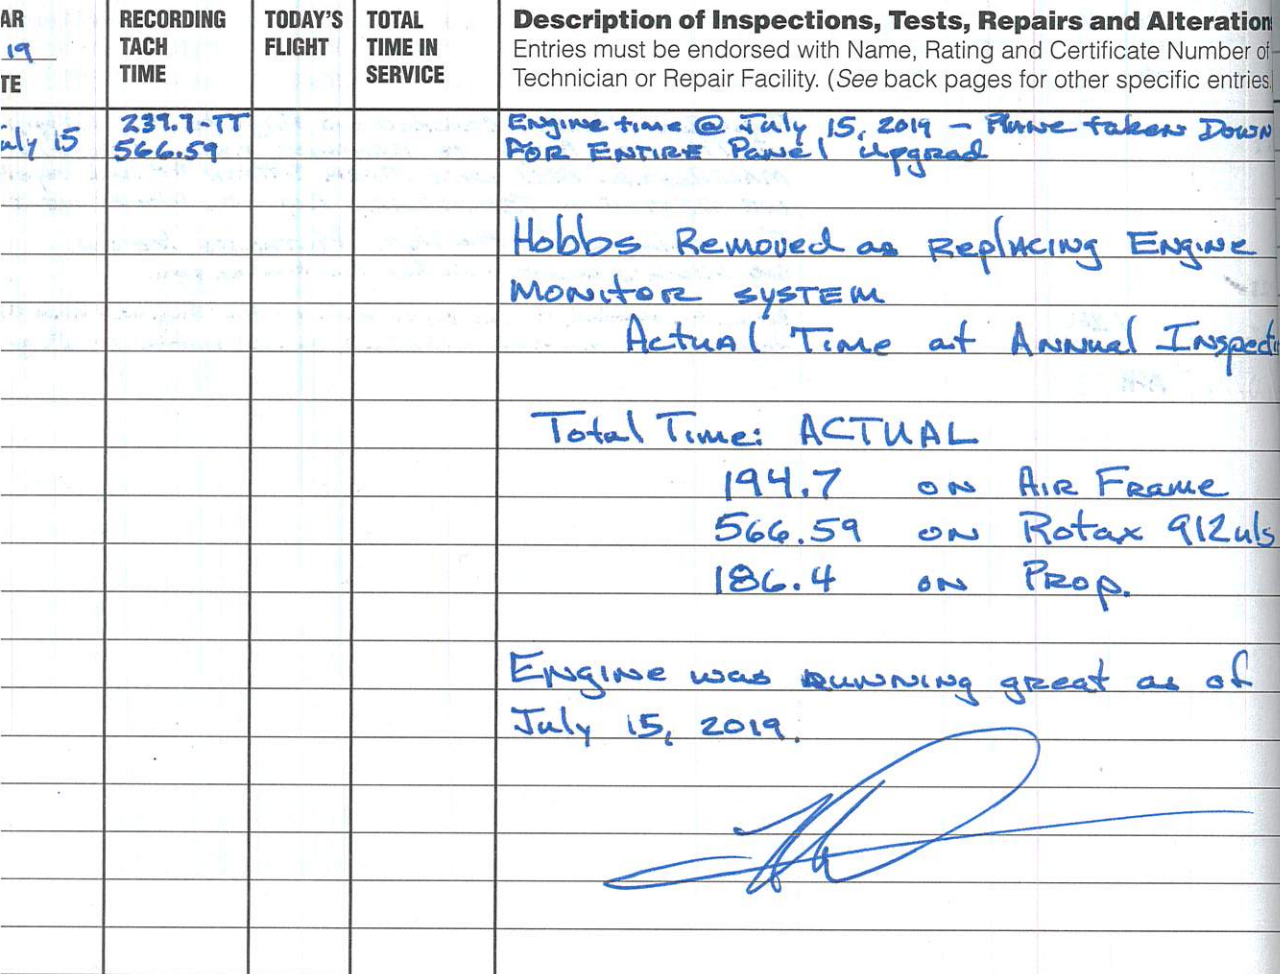 AR
19
TE
RECORDING
TACH
TIME
TODAY'S
FLIGHT
TOTAL
TIME IN
SERVICE
Description of Inspections, Tests, Repairs and Alteration
Entries must be endorsed with Name, Rating and Certificate Number of
Technician or Repair Facility. (See back pages for other specific entries.
uly 15
239.7-TT
566.59
Engine time @ July 15, 2019 - Plane taken Down
FOR ENTIRE Panel upgrad
Hobbs Removed as Replacing Engine
Monitor system
Actual Time at Annual Inspecti
Total Time: ACTUAL
194.7 on Air Frame
566.59 on Rotax 912uls
186.4 on Prop.
Engine was running great as of
July 15, 2019.